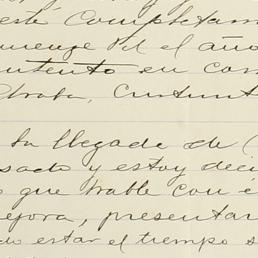 esté completam
menze Vd el año
ntento en con
trata,
la llegada de (
sado y estoy deci
o que hable con e
ejora, presentar
do estar el tiempo s